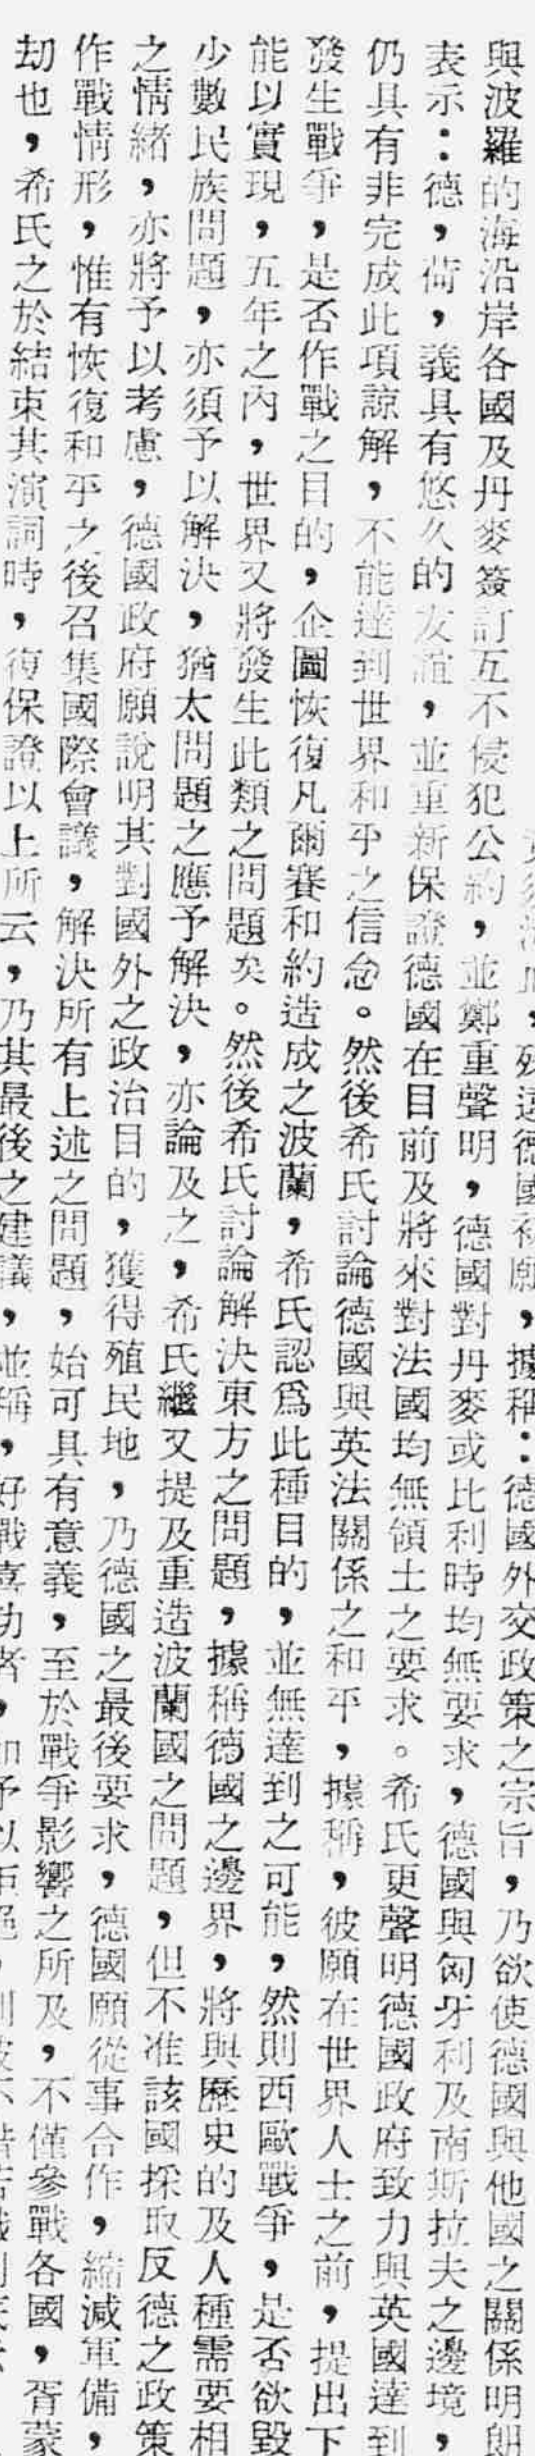 德國外交政策之宗旨，乃欲使德國與他國之關係明朗
與波羅的海沿岸各國及丹麥簽訂互不侵犯公約，並鄭重聲明，德國對丹麥或比利時均無要求，德國與匈牙利及南斯拉夫之邊境，
表示：德，荷，義具有悠久的友誼，並重新保證德國在目前及將來對法國均無領土之要求。希氏更聲明德國政府致力與英國達到
仍具有非完成此項諒解，不能達到世界和平之信念。然後希氏討論德國與英法關係之和平，據稱，彼願在世界人士之前，提出下
發生戰爭，是否作戰之目的，企圖恢復凡爾賽和約造成之波蘭，希氏認爲此種目的，並無達到之可能，然則西歐戰爭，是否欲毀
能以實現，五年之內，世界又將發生此類之問題矣。然後希氏討論解決東方之問題，據稱德國之邊界，將與歷史的及人種需要相
少數民族問題，亦須予以解決，猶太問題之應予解決，亦論及之，希氏繼又提及重造波蘭國之問題，但不准該國採取反德之政策
之情緒，亦將予以考慮，德國政府願說明其對國外之政治目的，獲得殖民地，乃德國之最後要求，德國願從事合作，縮減軍備，
作戰情形，惟有恢復和平之後召集國際會議，解決所有上述之問題，始可具有意義，至於戰爭影響之所及，不僅參戰各國，胥蒙
劫也，希氏之於結束其演詞時，復保證以上所云，乃其最後之建議，並稱，好戰喜功者，如予以拒絕